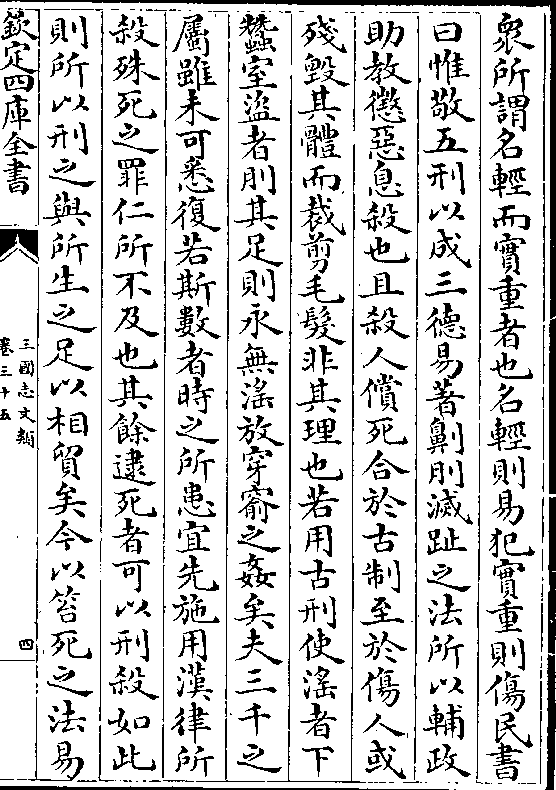 衆所謂名輕而實重者也名輕則易犯實重則傷民書
曰惟敬五刑以成三德易著劓刖滅趾之法所以輔政
助教懲惡息殺也且殺人償死合於古制至於傷人或
殘毀其體而裁剪毛髮非其理也若用古刑使淫者下
蠶室盜者刖其足則永無淫放穿窬之姦矣夫三千之
屬雖未可悉復若斯數者時之所患宜先施用漢律所
殺殊死之罪仁所不及也其餘逮死者可以刑殺如此
則所以刑之與所生之足以相貿矣今以笞死之法易
欽定四庫全書
三國志文類
卷三十五
四